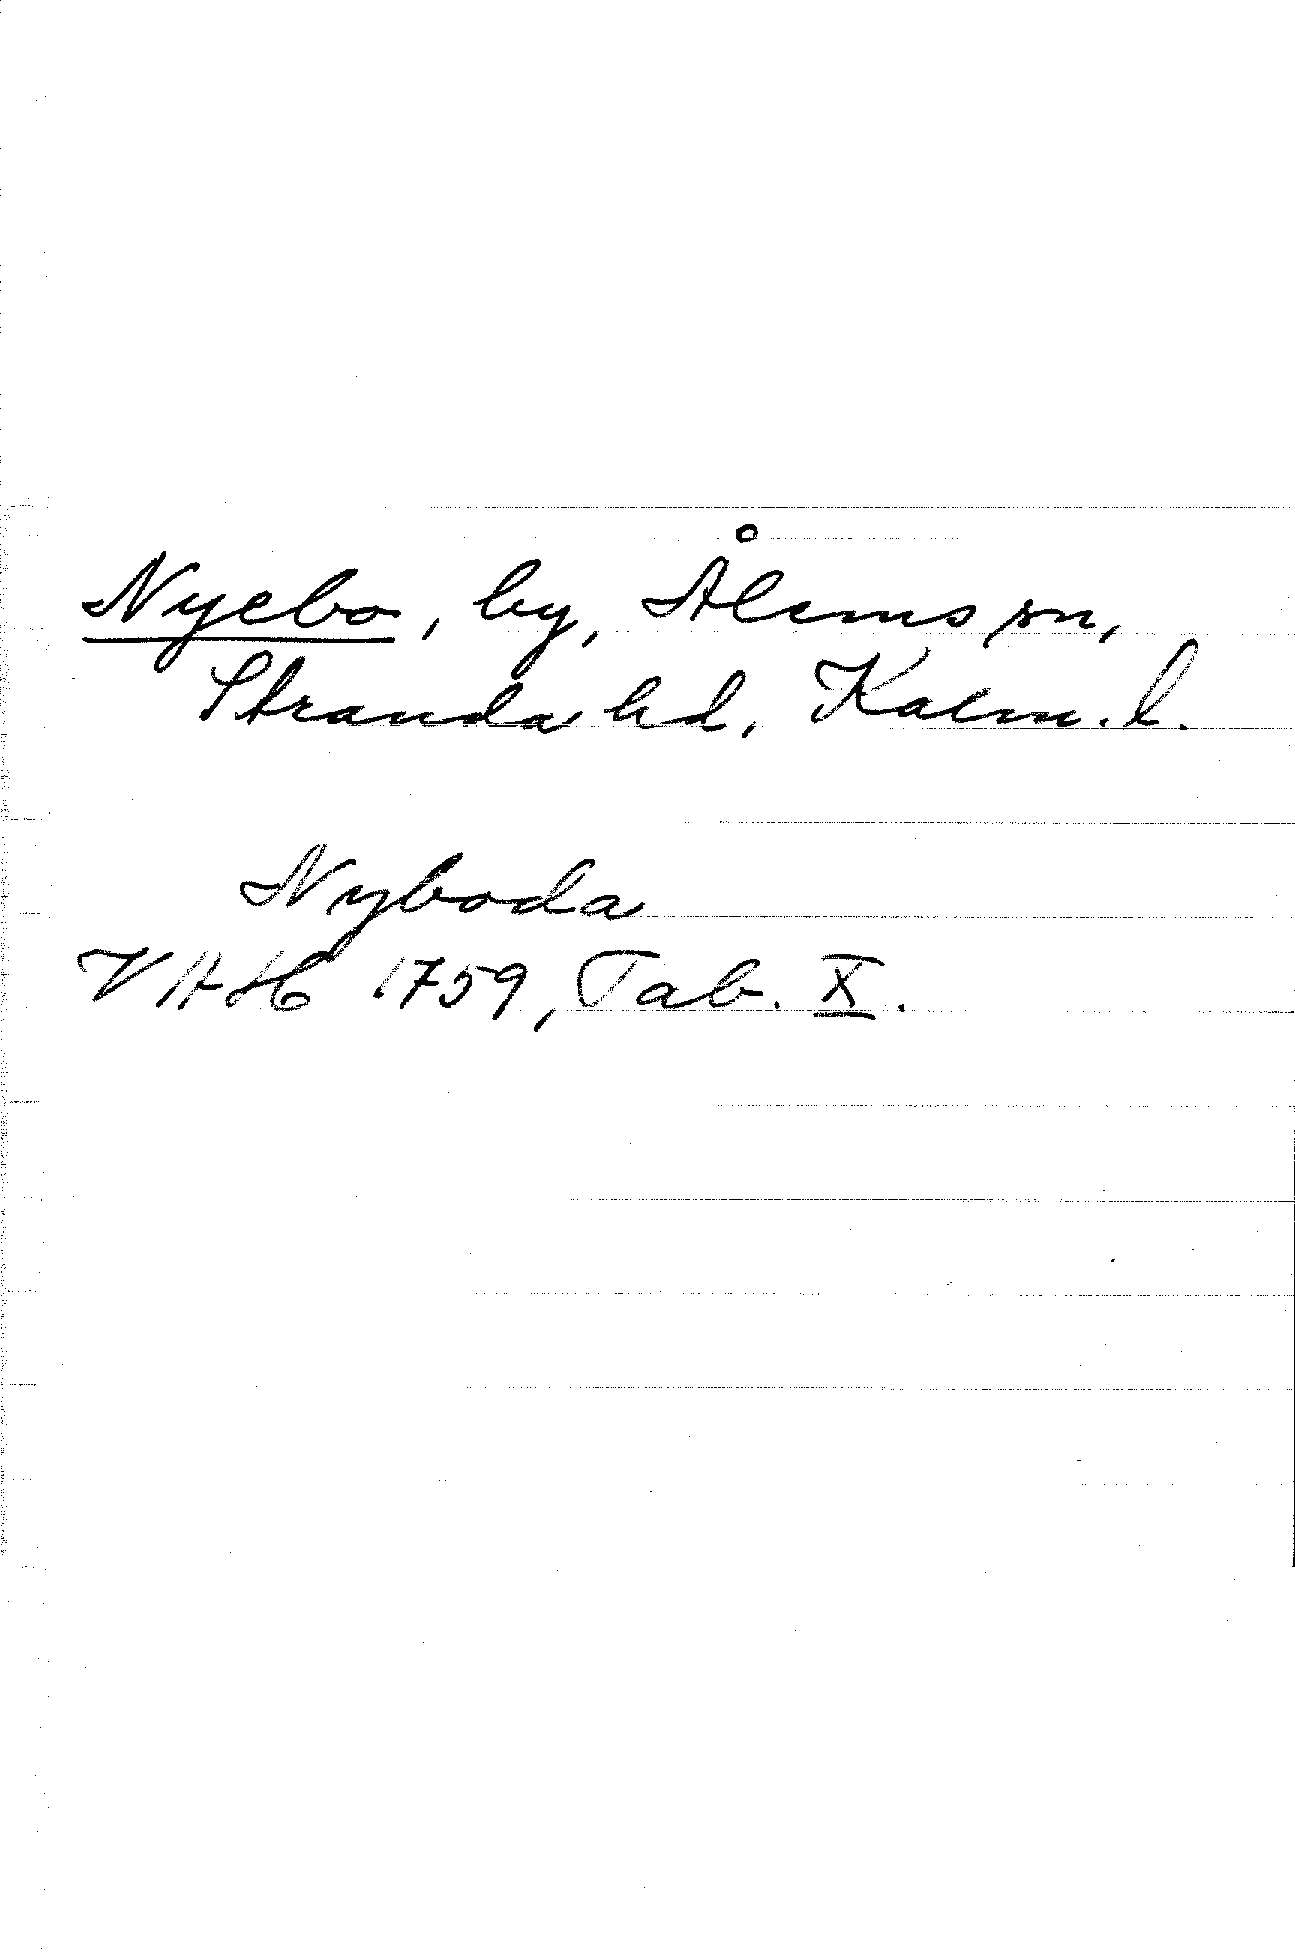 Nyebo, by, Ålems sn,
Stranda hd, Kalm. l.
Nyboda
VAH 1759, Tab. X.